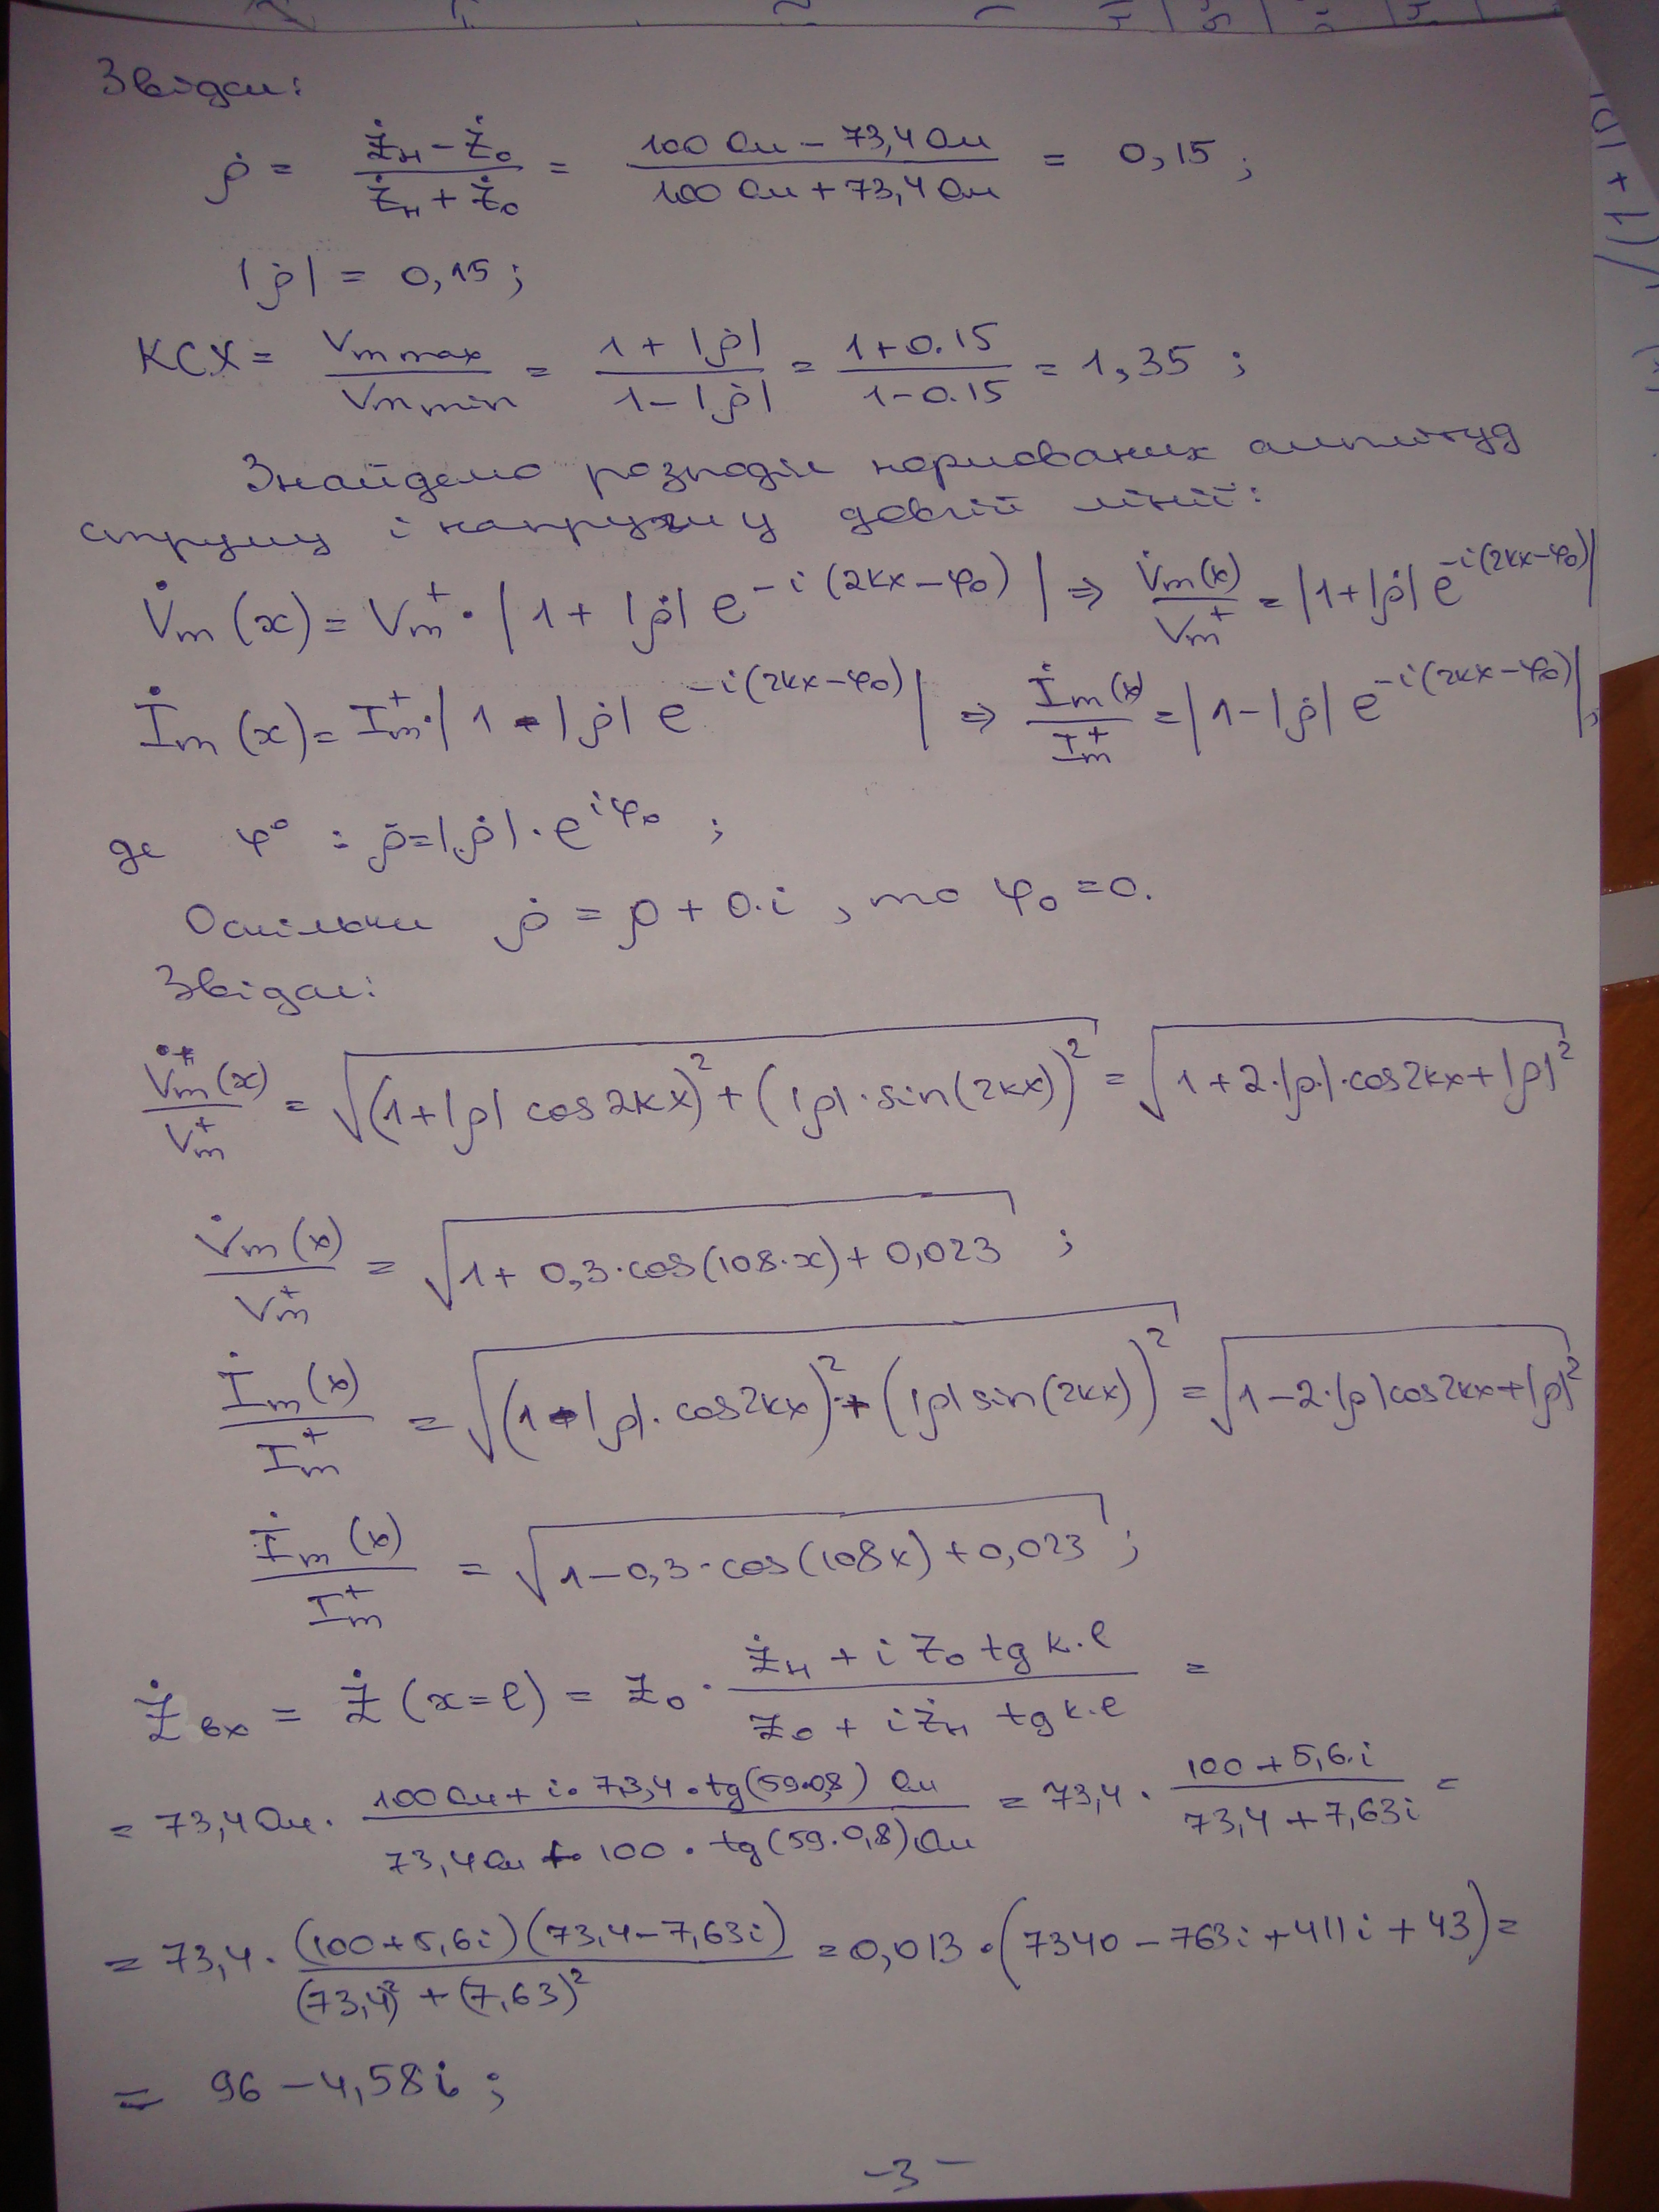 Звідси:
ρ̇ = (Ż_н − Ż_0)/(Ż_н + Ż_0) = (100 Ом − 73,4 Ом)/(100 Ом + 73,4 Ом) = 0,15 ;
|ρ̇| = 0,15 ;
КСХ = V_m max/V_m min = (1 + |ρ̇|)/(1 − |ρ̇|) = (1+0.15)/(1−0.15) = 1,35 ;
Знайдемо розподіл нормованих амплітуд
струму і напруги у довгій лінії:
V̇_m (x) = V_m^+ · |1 + |ρ̇| e^{−i(2kx−φ_0)}| ⇒ V̇_m(x)/V_m^+ = |1+|ρ̇| e^{−i(2kx−φ_0)}|
İ_m (x) = I_m^+ · |1 − |ρ̇| e^{−i(2kx−φ_0)}| ⇒ İ_m(x)/I_m^+ = |1−|ρ̇| e^{−i(2kx−φ_0)}|,
де φ^0 : ρ̇=|ρ̇|·e^{iφ_0} ;
Оскільки ρ̇ = ρ + 0·i , то φ_0 = 0.
Звідси:
V̇_m^+(x)/V_m^+ = √((1+|ρ| cos2kx)^2 + (|ρ|·sin(2kx))^2) = √(1+2·|ρ|·cos2kx+|ρ|^2)
V̇_m(x)/V_m^+ = √(1+ 0,3·cos(108·x)+ 0,023) ;
İ_m(x)/I_m^+ = √((1−|ρ|·cos2kx)^2 + (|ρ| sin(2kx))^2) = √(1−2·|ρ|cos2kx+|ρ|^2)
İ_m(x)/I_m^+ = √(1−0,3·cos(108x)+0,023) ;
Ż_вх = Ż (x=ℓ) = Z_0 · (Ż_н + i Z_0 tg k·ℓ)/(Z_0 + i Ż_н tg k·ℓ) =
= 73,4 Ом · (100 Ом + i· 73,4·tg(59·0,8) Ом)/(73,4 Ом + 100 · tg(59·0,8) Ом) = 73,4 · (100+5,6·i)/(73,4+7,63i) =
= 73,4 · (100+5,6i)(73,4−7,63i)/((73,4)^2 + (7,63)^2) = 0,013 · (7340 − 763i + 411i + 43) =
= 96 − 4,58i ;
−3−